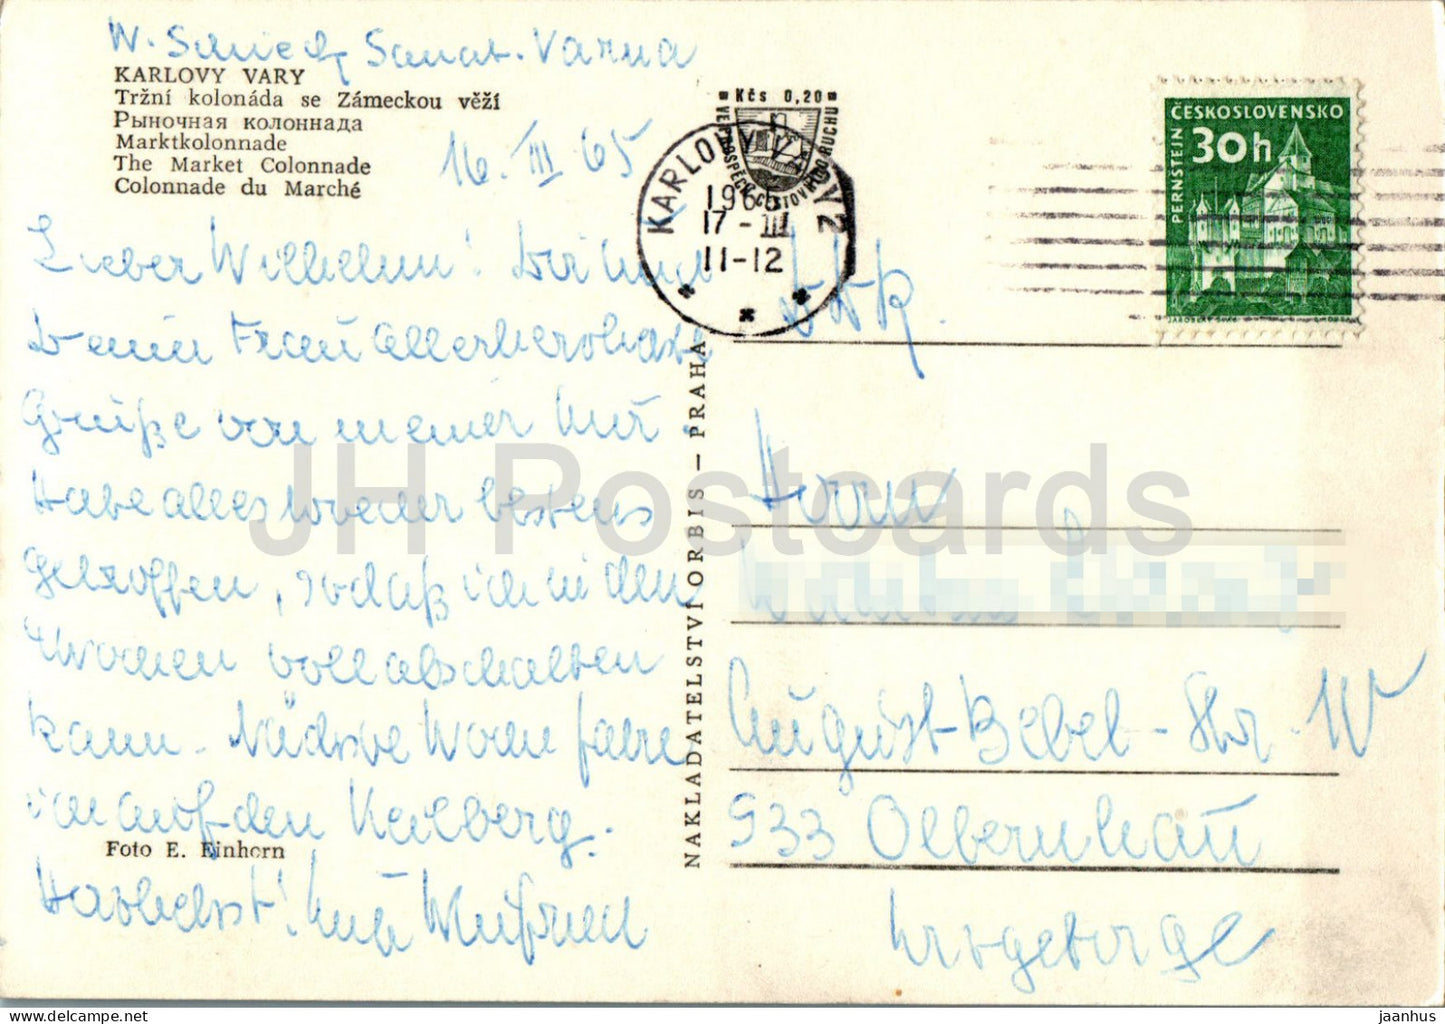 W. Schieck Sanat. Varna
KARLOVY VARY
Tržní kolonáda se Zámeckou věží
Рыночная колоннада
Marktkolonnade
The Market Colonnade
Colonnade du Marché
16. III. 65
Lieber Wilhelm! Dir und
Deiner Frau allerherzlichste
Grüße von meiner Kur.
Habe alles wieder bestens
getroffen, sodaß ich in den
4 Wochen voll abschalten
kann. Nächste Woche fahre
ich auf den Keilberg.
Foto E. Einhorn
Herzlichst! Winfried
NAKLADATELSTVÍ ORBIS – PRAHA
Kčs 0,20
VE PROSPĚCH CESTOVNÍHO RUCHU
KARLOVY VARY 2
1965
17 - III
11-12
ČESKOSLOVENSKO
30h
PERNŠTEJN
DDR.
Herrn
August-Bebel-Str. 1W
933 Olbernhau
Erzgebirge
JH Postcards
jaanhus © www.jaanhus.com